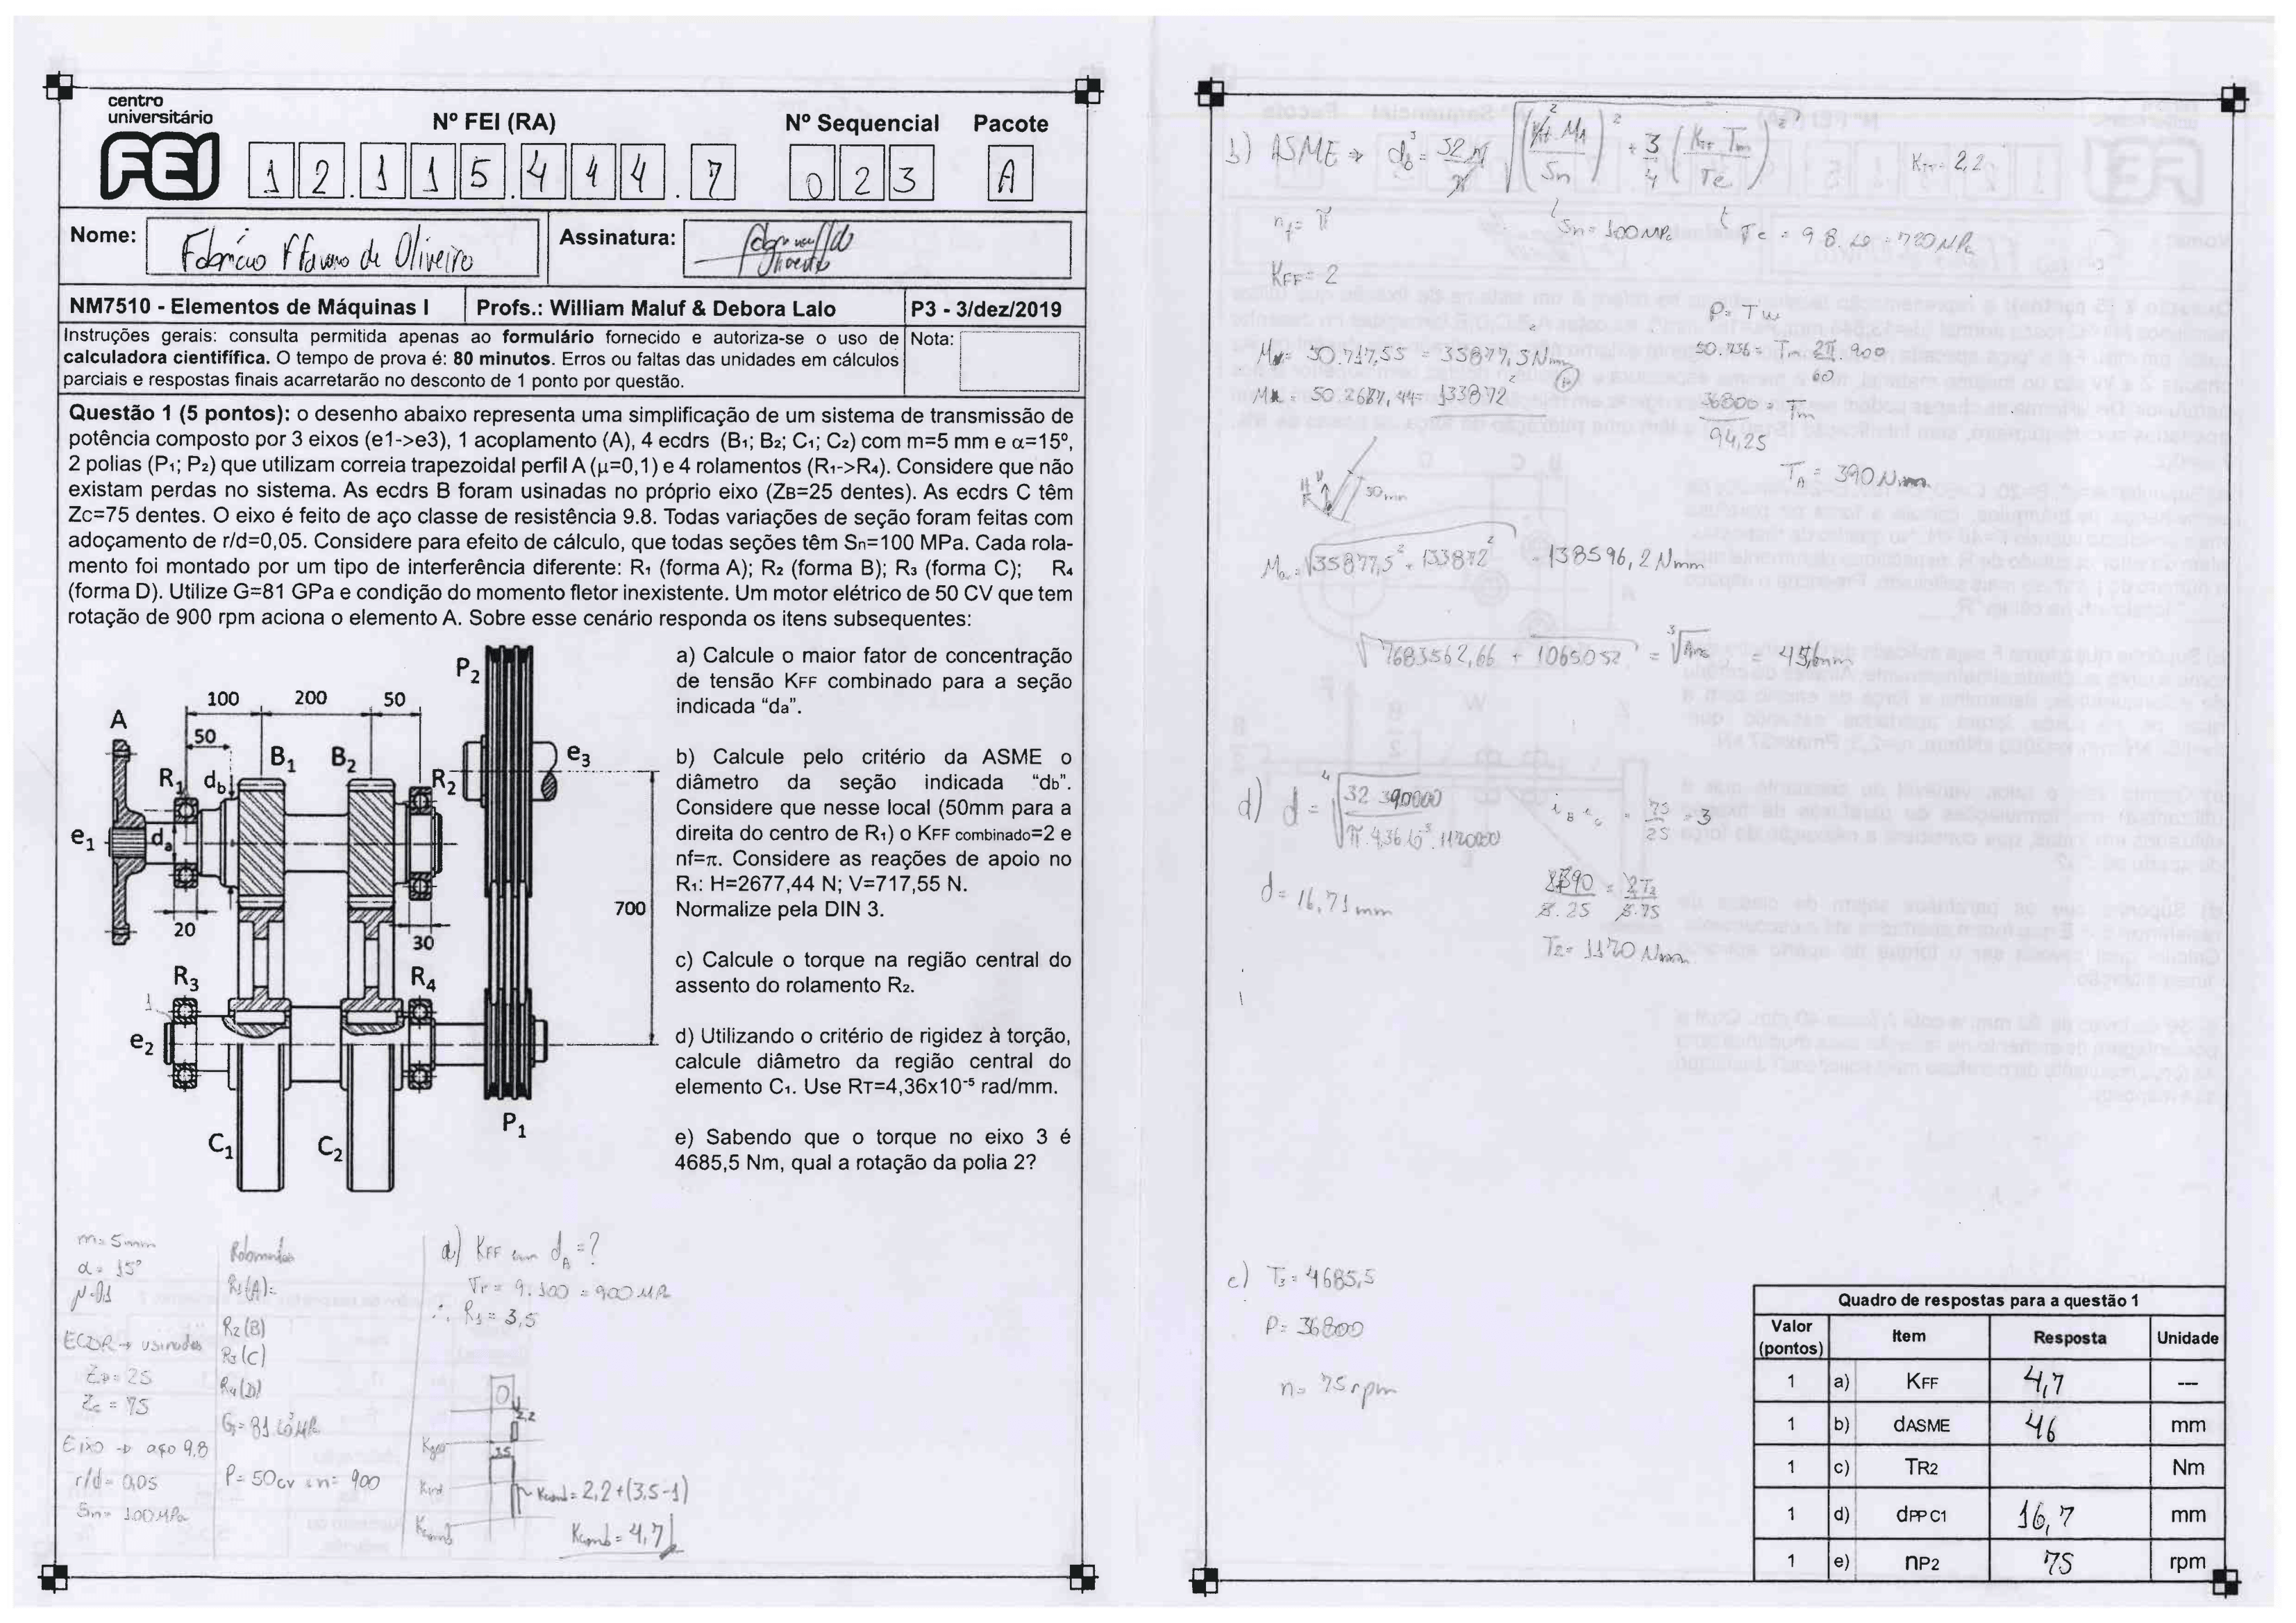 centro
universitário
FEI
Nº FEI (RA)
Nº Sequencial
Pacote
12.115.444.7
023
A
Nome:
de Oliveira
Assinatura:
NM7510 - Elementos de Máquinas I
Profs.: William Maluf & Debora Lalo
P3 - 3/dez/2019
Instruções gerais: consulta permitida apenas ao formulário fornecido e autoriza-se o uso de
calculadora cientifífica. O tempo de prova é: 80 minutos. Erros ou faltas das unidades em cálculos
parciais e respostas finais acarretarão no desconto de 1 ponto por questão.
Nota:
Questão 1 (5 pontos): o desenho abaixo representa uma simplificação de um sistema de transmissão de
potência composto por 3 eixos (e1->e3), 1 acoplamento (A), 4 ecdrs (B1; B2; C1; C2) com m=5 mm e α=15º,
2 polias (P1; P2) que utilizam correia trapezoidal perfil A (μ=0,1) e 4 rolamentos (R1->R4). Considere que não
existam perdas no sistema. As ecdrs B foram usinadas no próprio eixo (ZB=25 dentes). As ecdrs C têm
Zc=75 dentes. O eixo é feito de aço classe de resistência 9.8. Todas variações de seção foram feitas com
adoçamento de r/d=0,05. Considere para efeito de cálculo, que todas seções têm Sn=100 MPa. Cada rola-
mento foi montado por um tipo de interferência diferente: R1 (forma A); R2 (forma B); R3 (forma C); R4
(forma D). Utilize G=81 GPa e condição do momento fletor inexistente. Um motor elétrico de 50 CV que tem
rotação de 900 rpm aciona o elemento A. Sobre esse cenário responda os itens subsequentes:
a) Calcule o maior fator de concentração
de tensão KFF combinado para a seção
indicada "da".
b) Calcule pelo critério da ASME o
diâmetro da seção indicada "db".
Considere que nesse local (50mm para a
direita do centro de R1) o KFF combinado=2 e
nf=π. Considere as reações de apoio no
R1: H=2677,44 N; V=717,55 N.
Normalize pela DIN 3.
c) Calcule o torque na região central do
assento do rolamento R2.
d) Utilizando o critério de rigidez à torção,
calcule diâmetro da região central do
elemento C1. Use RT=4,36x10⁻⁵ rad/mm.
e) Sabendo que o torque no eixo 3 é
4685,5 Nm, qual a rotação da polia 2?
P2
100 200 50
A
50
B1 B2
e3
R1 db
R2
e1
da
700
20
30
R3
R4
1
e2
P1
C1
C2
m=5mm
α= 15°
μ=0,1
ECDR → usinadas
ZB=25
Zc = 75
Eixo → aço 9.8
r/d= 0,05
Sn= 100MPa
Rolamentos
R1(A):
R2(B)
R3(C)
R4(D)
G=81.10³MPa
P= 50cv n= 900
a) KFF em dA=?
σr = 9.100 = 900 MPa
∴ R1 = 3,5
2,2
15
Kcomb= 2,2+(3,5-1)
Kcomb
Kcomb= 4,7
b) ASME → db³= 32 nf/π √((Kff.MA/Sn)² + 3/4 (Kft Tm/Te)²)
Kft= 2,2
nf= π
Sn= 100MPa
Te = 9.8.10 = 720MPa
KFF= 2
P= Tω
M= 50.717,55 = 35877,5Nmm
M= 50.2687,44= 133872
50.736= Tm 2π.900/60
36800 = Tm
94,25
TA= 390Nm
50mm
Ma=√(35877,5²+133872²) = 138596,2Nmm
√(7683562,66 + 1065052) = ³√Ans = 45,6mm
d) d = ⁴√(32.390000/π.4,36.10⁻⁵.1170000)
= 75/25 =3
d= 16,71mm
390/25 = T2/75
T2= 1170Nm
e) T3=4685,5
P= 36800
n= 75rpm
Quadro de respostas para a questão 1
Valor (pontos) Item Resposta Unidade
1 a) KFF 4,7 ---
1 b) dASME 46 mm
1 c) TR2 Nm
1 d) dPP C1 16,7 mm
1 e) nP2 75 rpm